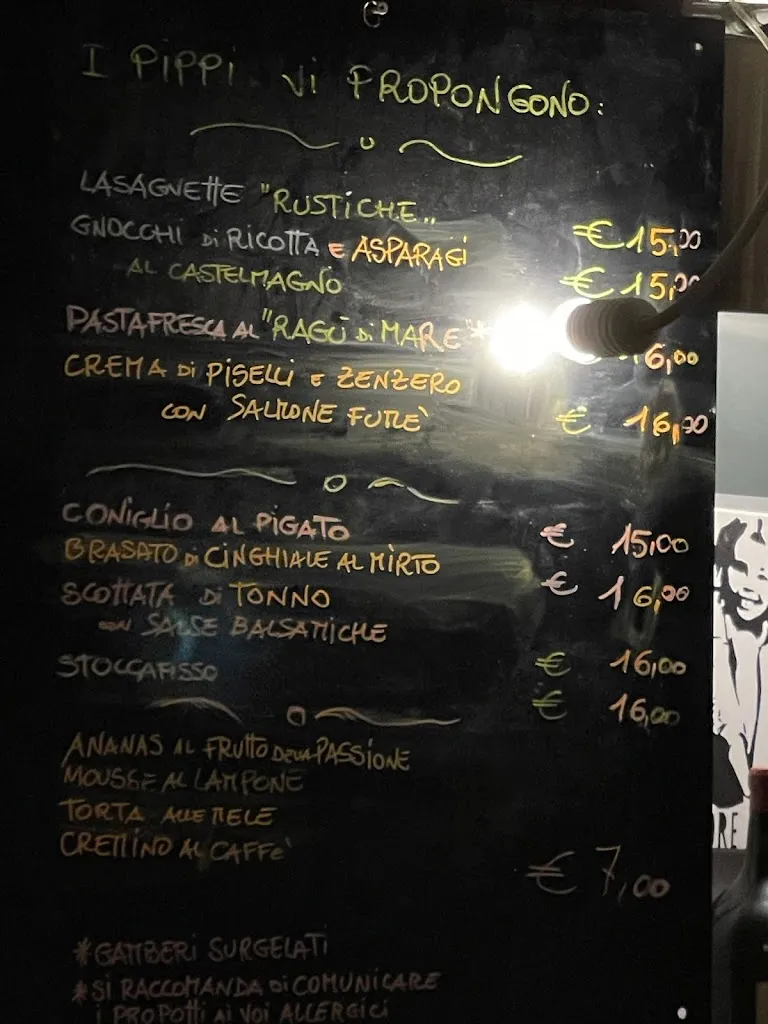 I PIPPI Vi PROPONGONO:
LASAGNETTE "RUSTiCHE.. € 15,00
GNOCCHI di RICOTTA e ASPARAGi
AL CASTELMAGNO € 15,00
PASTA FRESCA AL "RAGÙ di MARE"* 6,00
CREMA di PISELLI e ZENZERO
CON SALMONE FUMÈ € 16,00
CONIGLIO AL PIGATO € 15,00
BRASATO di CINGHIALE AL MIRTO € 16,00
SCOTTATA di TONNO
CON SALSE BALSAMICHE € 16,00
STOCCAFISSO € 16,00
ANANAS AL FRUTTO DELLA PASSIONE
MOUSSE AL LAMPONE
TORTA ALLE MELE
CREMINO AL CAFFÈ € 7,00
*GAMBERI SURGELATI
*SI RACCOMANDA di COMUNICARE
i PROPOTTI AI VOI ALLERGICI
RE